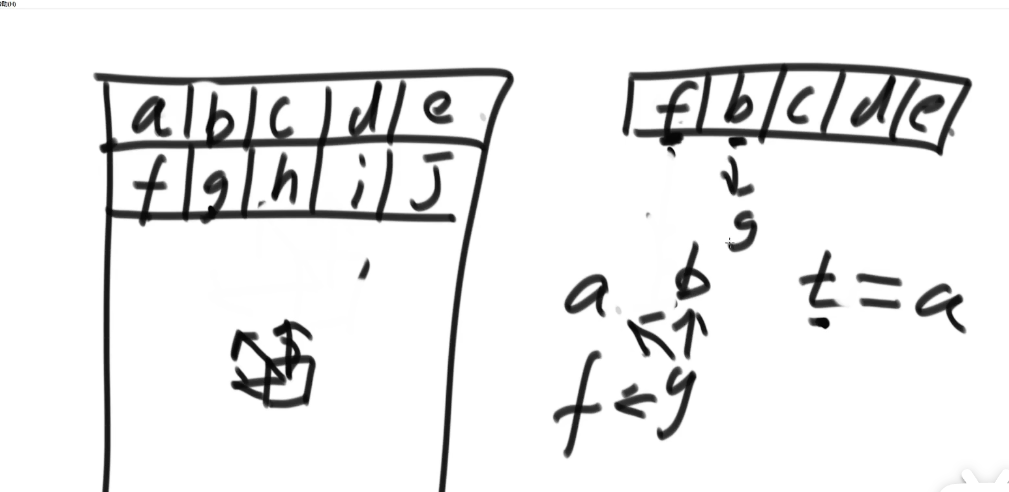 a b c d e
f g h i J
f b c d e
g
a b
t = a
f g